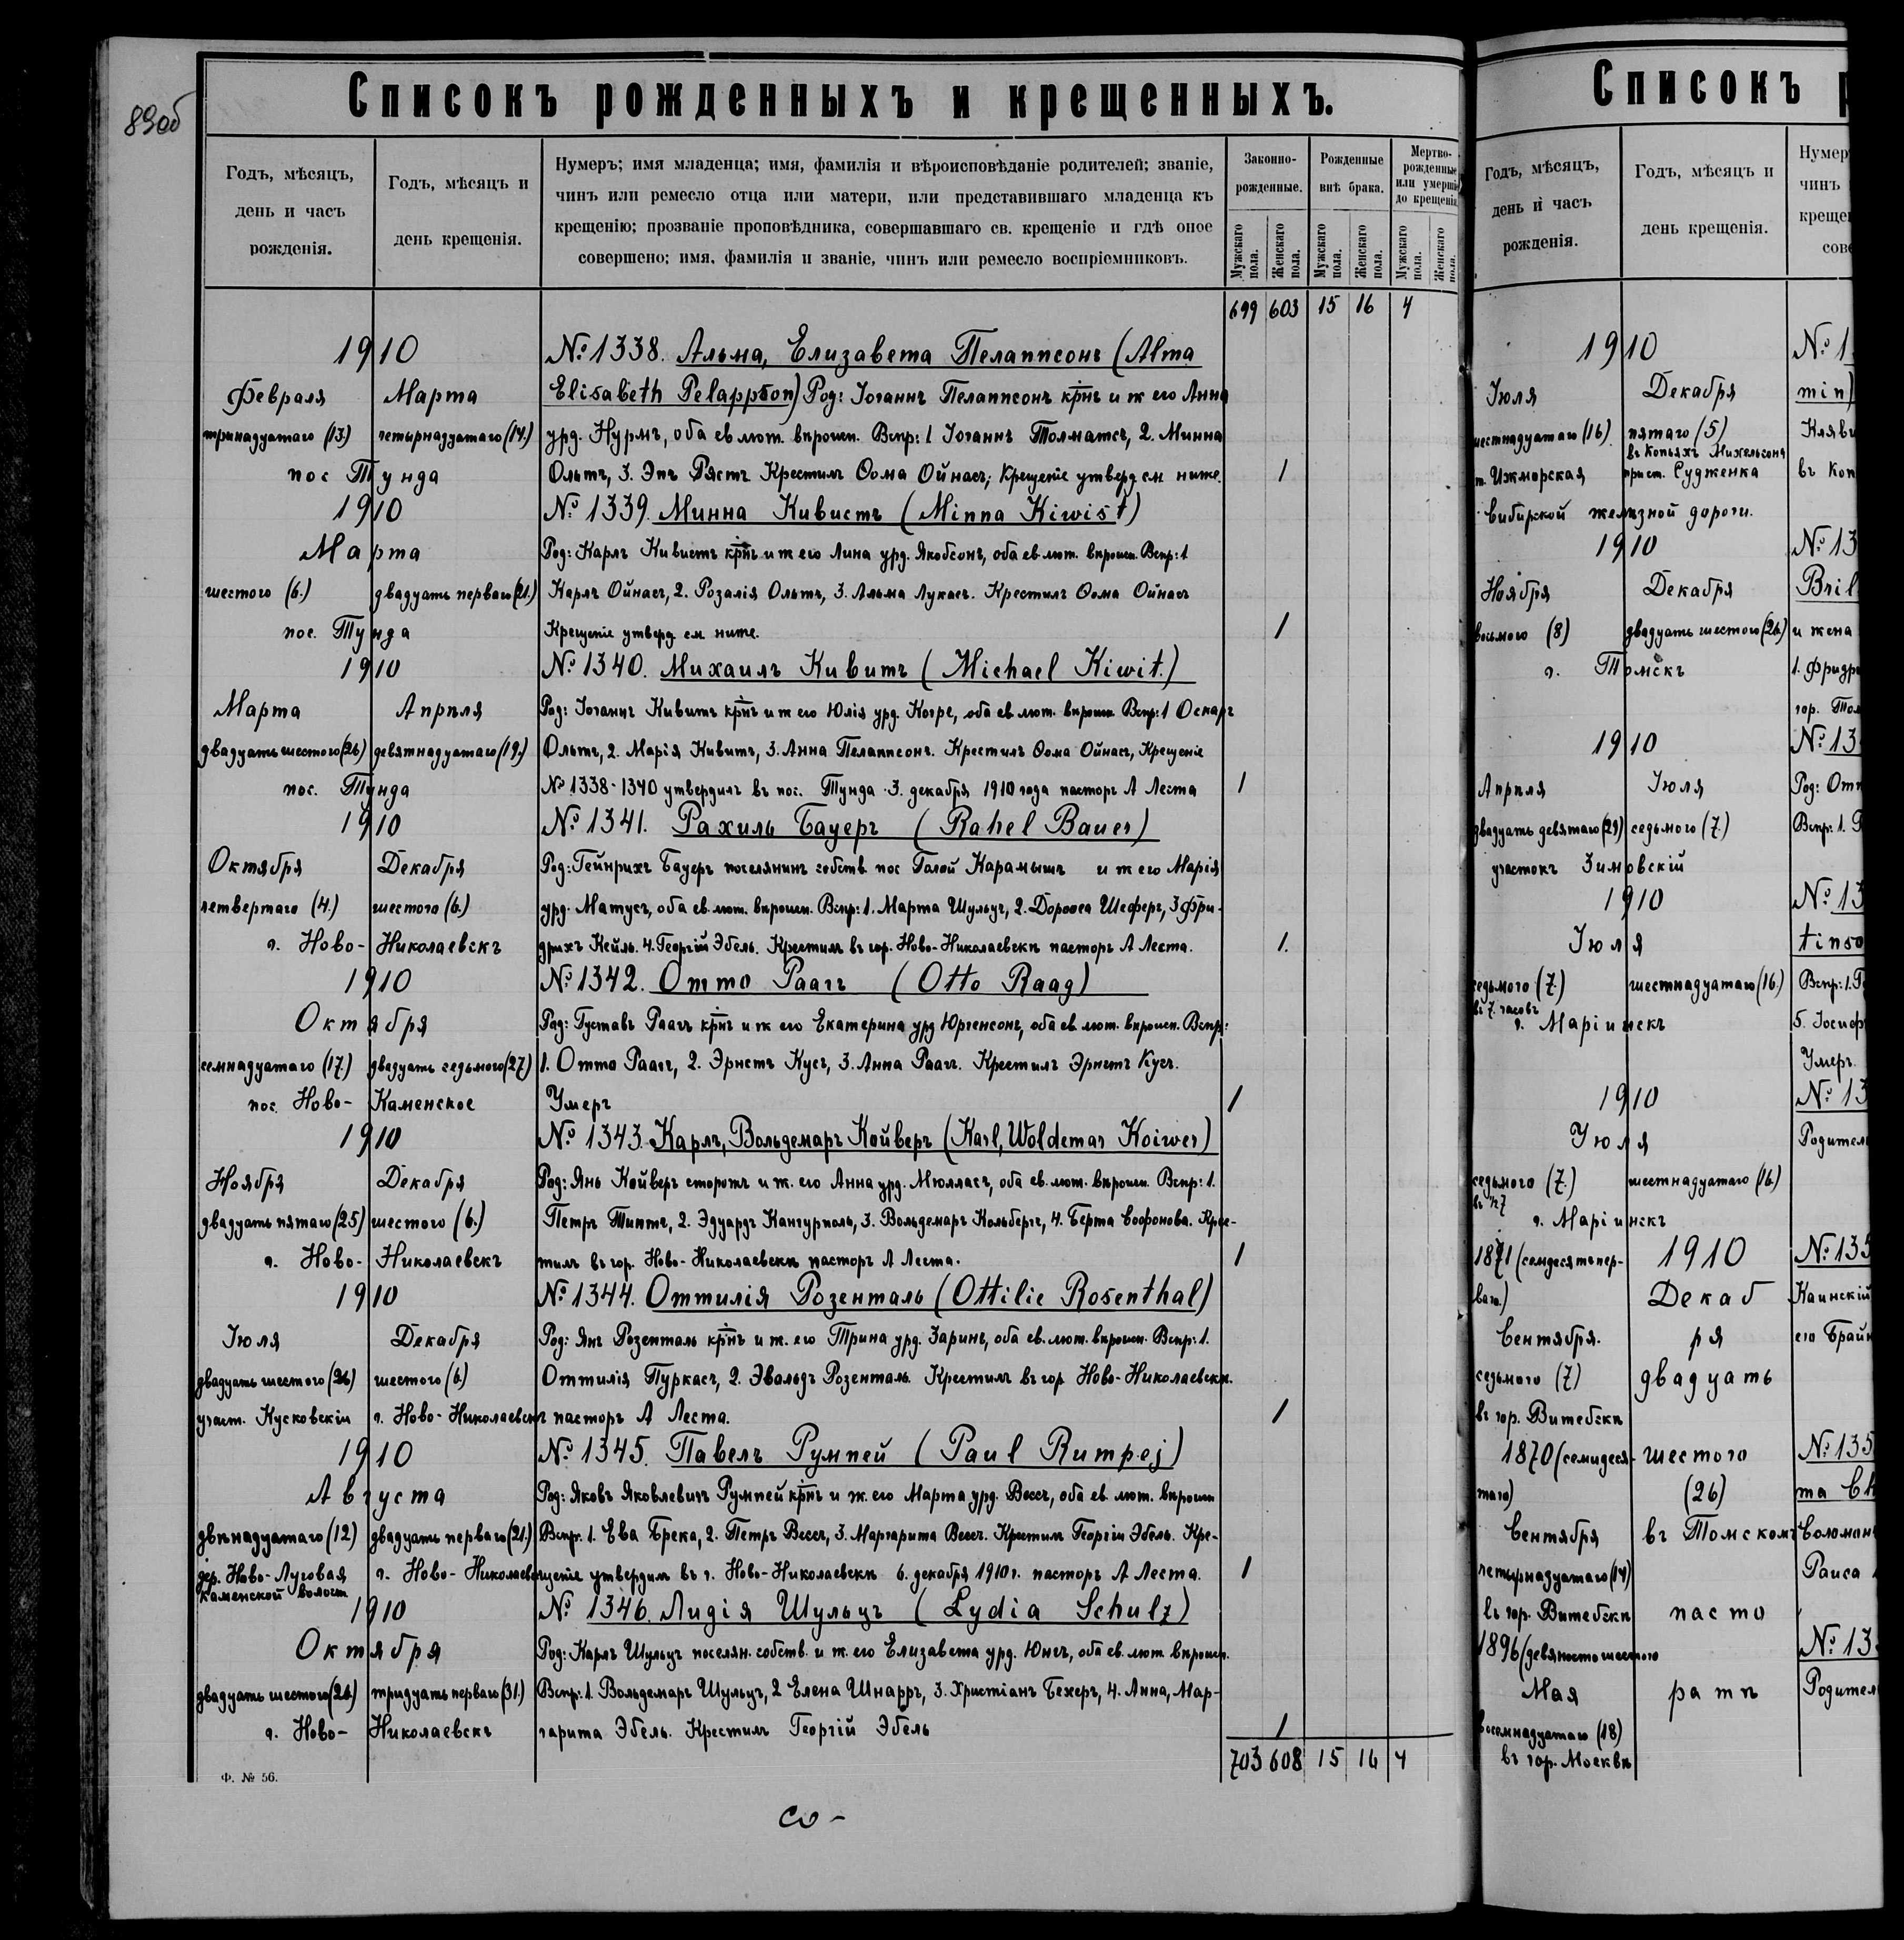 89об
Списокъ рожденныхъ и крещенныхъ.
Годъ, мѣсяцъ, день и часъ рожденія.
Годъ, мѣсяцъ и день крещенія.
Нумеръ; имя младенца; имя, фамилія и вѣроисповѣданіе родителей; званіе,
чинъ или ремесло отца или матери, или представившаго младенца къ
крещенію; прозваніе проповѣдника, совершавшаго св. крещеніе и гдѣ оное
совершено; имя, фамилія и званіе, чинъ или ремесло воспріемниковъ.
Законно-рожденные.
Рожденные внѣ брака.
Мертво-рожденные или умершіе до крещенія
Мужскаго пола. Женскаго пола. Мужскаго пола. Женскаго пола. Мужскаго пола. Женскаго пола.
699 603 15 16 4
1910 № 1338. Альма, Елизавета Пелаппсонъ (Alma
Февраля Марта Elisabeth Pelappson) Род: Іоганнъ Пелаппсонъ крнъ и ж его Анна
тринадцатаго (13.) четырнадцатаго (14.) урд. Нурмъ, оба ев лют. вѣроисп. Вспр: 1 Іоганнъ Толматсъ, 2. Минна
пос Тунда Ольтъ, 3. Эпъ Рястъ Крестилъ Ѳома Ойнасъ; Крещеніе утверд см ниже. 1
1910 № 1339. Минна Кивистъ (Minna Kiwist)
Марта Род: Карлъ Кивистъ крнъ и ж его Лина урд. Якобсонъ, оба ев. лют. вѣроисп. Вспр: 1
шестого (6.) двадцать перваго (21.) Карлъ Ойнасъ, 2. Розалія Ольтъ, 3. Альма Лукасъ. Крестилъ Ѳома Ойнасъ
пос. Тунда Крещеніе утверд. см ниже. 1
1910 № 1340. Михаилъ Кивитъ (Michael Kiwit.)
Марта Апрѣля Род: Іоганнъ Кивитъ крнъ и ж его Юлія урд. Когре, оба ев лют. вѣроисп. Вспр: 1 Оскаръ
двадцать шестого (26) девятнадцатаго (19.) Ольтъ, 2. Марія Кивитъ, 3. Анна Пелаппсонъ. Крестилъ Ѳома Ойнасъ, Крещеніе
пос. Тунда № 1338-1340 утвердилъ въ пос. Тунда 3. декабря 1910 года пасторъ А Леста 1
1910 № 1341. Рахиль Бауеръ (Rahel Bauer)
Октября Декабря Род: Гейнрихъ Бауеръ поселянинъ собств пос Голой Карамышъ и ж его Марія
четвертаго (4.) шестого (6.) урд. Матусъ, оба ев. лют. вѣроисп. Вспр: 1. Марта Шульцъ, 2. Доротея Шеферъ, 3 Фри-
г. Ново-Николаевскъ дрихъ Кейль. 4. Георгій Эбель. Крестилъ въ гор. Ново-Николаевскѣ пасторъ А Леста. 1.
1910 № 1342. Отто Раагъ (Otto Raag)
Октября Род: Густавъ Раагъ крнъ и ж его Екатерина урд Юргенсонъ, оба ев лют. вѣроисп. Вспр:
семнадцатаго (17.) двадцать седьмого (27) 1. Отто Раагъ, 2. Эрнстъ Кусъ, 3. Анна Раагъ. Крестилъ Эрнстъ Кусъ.
пос. Ново-Каменское Умеръ 1
1910 № 1343. Карлъ, Вольдемаръ Койверъ (Karl, Woldemar Koiwer)
Ноября Декабря Род: Янъ Койверъ сторожъ и ж. его Анна урд. Мюлласъ, оба ев. лют. вѣроисп. Вспр: 1.
двадцать пятаго (25) шестого (6.) Петръ Типтъ, 2. Эдуардъ Кангурполь, 3. Вольдемаръ Кольбергъ, 4. Берта Соофонова. Кре-
г. Ново-Николаевскъ тилъ въ гор. Ново-Николаевскѣ пасторъ А Леста. 1
1910 № 1344. Оттилія Розенталь (Ottilie Rosenthal)
Іюля Декабря Род: Янъ Розенталь крнъ и ж. его Трина урд. Заринъ, оба ев. лют. вѣроисп. Вспр: 1.
двадцать шестого (26) шестого (6.) Оттилія Пуркасъ, 2. Эвальдъ Розенталь. Крестилъ въ гор Ново-Николаевскѣ.
участ. Кусковскій г. Ново-Николаевскъ пасторъ А Леста. 1
1910 № 1345. Павелъ Румпей (Paul Rumpej)
Августа Род: Яковъ Яковлевичъ Румпей крнъ и ж. его Марта урд. Вессъ, оба ев лют. вѣроисп
двѣнадцатаго (12) двадцать перваго (21.) Вспр. 1. Ева Брека, 2. Петръ Вессъ, 3. Маргарита Вессъ. Крестилъ Георгій Эбель. Кре-
дер. Ново-Луговая г. Ново-Николаевс щеніе утвердилъ въ г. Ново-Николаевскѣ 6. декабря 1910 г. пасторъ А Леста. 1
Каменской волост
1910 № 1346. Лидія Шульцъ (Lydia Schulz)
Октября Род: Карлъ Шульцъ поселян. собств. и ж. его Елизавета урд. Юнгъ, оба ев. лют. вѣроисп.
двадцать шестого (26.) тридцать перваго (31.) Вспр: 1. Вольдемаръ Шульцъ, 2 Елена Шнарръ, 3. Христіанъ Бехеръ, 4. Анна, Мар-
г. Ново-Николаевскъ гарита Эбель. Крестилъ Георгій Эбель 1
703 608 15 16 4
Ф. № 56.
Списокъ р
Годъ, мѣсяцъ, день и часъ рожденія.
Годъ, мѣсяцъ и день крещенія.
Нумер
чинъ
креще
сове
1910 № 1
Іюля Декабря min)
шестнадцатаго (16) пятаго (5) Кляви
въ копьяхъ Михельсона
т. Ижморская прист. Судженка въ Коп
Сибирской желѣзной дороги.
1910 № 13
Ноября Декабря Bril
восьмого (8) двадцать шестого (26) и жена
г. Томскъ 1. Фридри
гор. Том
1910 № 13
Апрѣля Іюля Род: Отт
двадцать девятаго (29) седьмого (7.) Вспр: 1.
участокъ Зимовскій
1910 № 13
Іюля tinso
седьмого (7.) шестнадцатаго (16.) Вспр: 1.
въ 7. часовъ
г. Маріинскъ 5. Іосиф
Умеръ.
1910 № 13
Іюля Родител
седьмого (7.) шестнадцатаго (16.)
г. Маріинскъ
1871 (семдесятъ пер- 1910 № 135
ваго) Декаб Каинскій
Сентября. ря его Брайн
седьмого (7) двадцать
въ гор. Витебскѣ
1870 (семидеся- шестого № 135
таго) (26) та
Сентября въ Томскомъ Соломон
четырнадцатаго (14) Раиса
въ гор. Витебскѣ пасто
1896 (девяносто шестого № 13
Мая ратѣ Родител
восемнадцатаго (18)
въ гор. Москвѣ